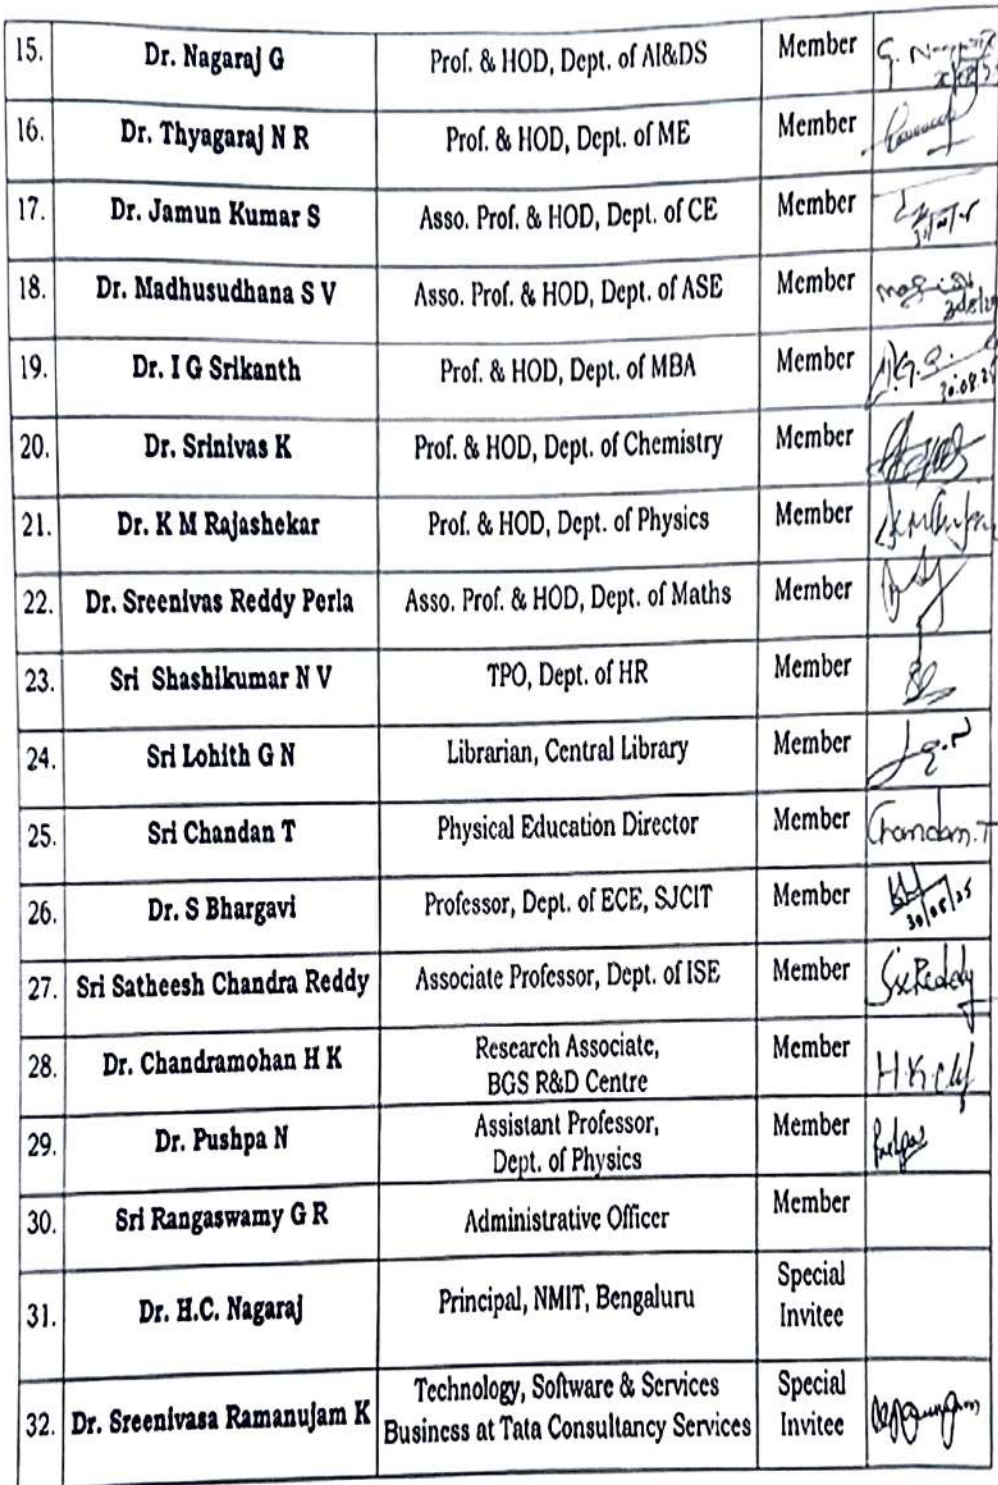 15. Dr. Nagaraj G Prof. & HOD, Dept. of AI&DS Member
16. Dr. Thyagaraj N R Prof. & HOD, Dept. of ME Member
17. Dr. Jamun Kumar S Asso. Prof. & HOD, Dept. of CE Member
18. Dr. Madhusudhana S V Asso. Prof. & HOD, Dept. of ASE Member
19. Dr. I G Srikanth Prof. & HOD, Dept. of MBA Member
20. Dr. Srinivas K Prof. & HOD, Dept. of Chemistry Member
21. Dr. K M Rajashekar Prof. & HOD, Dept. of Physics Member
22. Dr. Sreenivas Reddy Perla Asso. Prof. & HOD, Dept. of Maths Member
23. Sri Shashikumar N V TPO, Dept. of HR Member
24. Sri Lohith G N Librarian, Central Library Member
25. Sri Chandan T Physical Education Director Member Chandan.T
26. Dr. S Bhargavi Professor, Dept. of ECE, SJCIT Member
30/08/25
27. Sri Satheesh Chandra Reddy Associate Professor, Dept. of ISE Member
28. Dr. Chandramohan H K Research Associate,
BGS R&D Centre Member
29. Dr. Pushpa N Assistant Professor,
Dept. of Physics Member
30. Sri Rangaswamy G R Administrative Officer Member
31. Dr. H.C. Nagaraj Principal, NMIT, Bengaluru Special
Invitee
32. Dr. Sreenivasa Ramanujam K Technology, Software & Services
Business at Tata Consultancy Services Special
Invitee